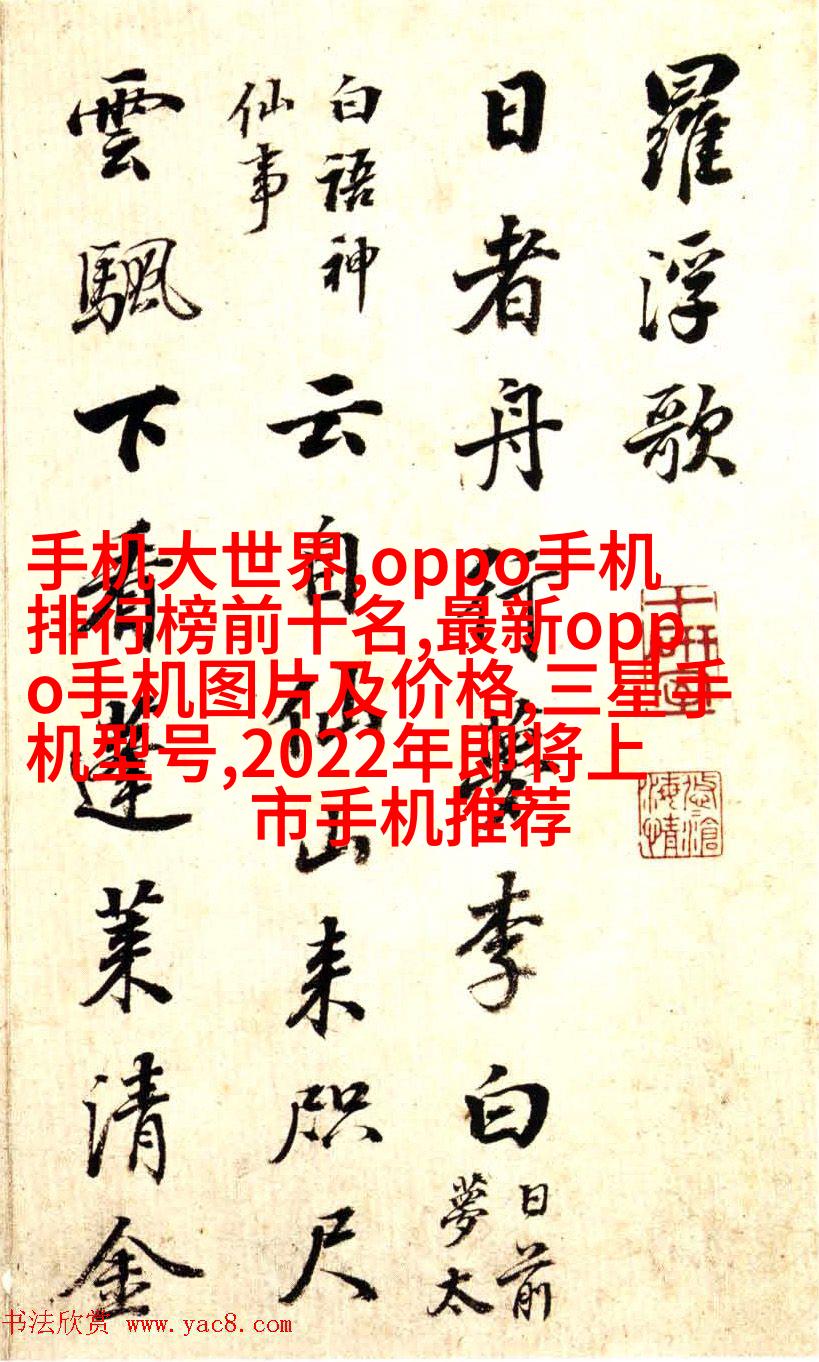 羅浮歌
日者舟行夢李白
日前
夢太
白語神
仙事
云自仙山来咫尺
雲颿下看蓬莱清
金
手机大世界,oppo手机
排行榜前十名,最新opp
o手机图片及价格,三星手
机型号,2022年即将上
市手机推荐
书法欣赏 www.yac8.com